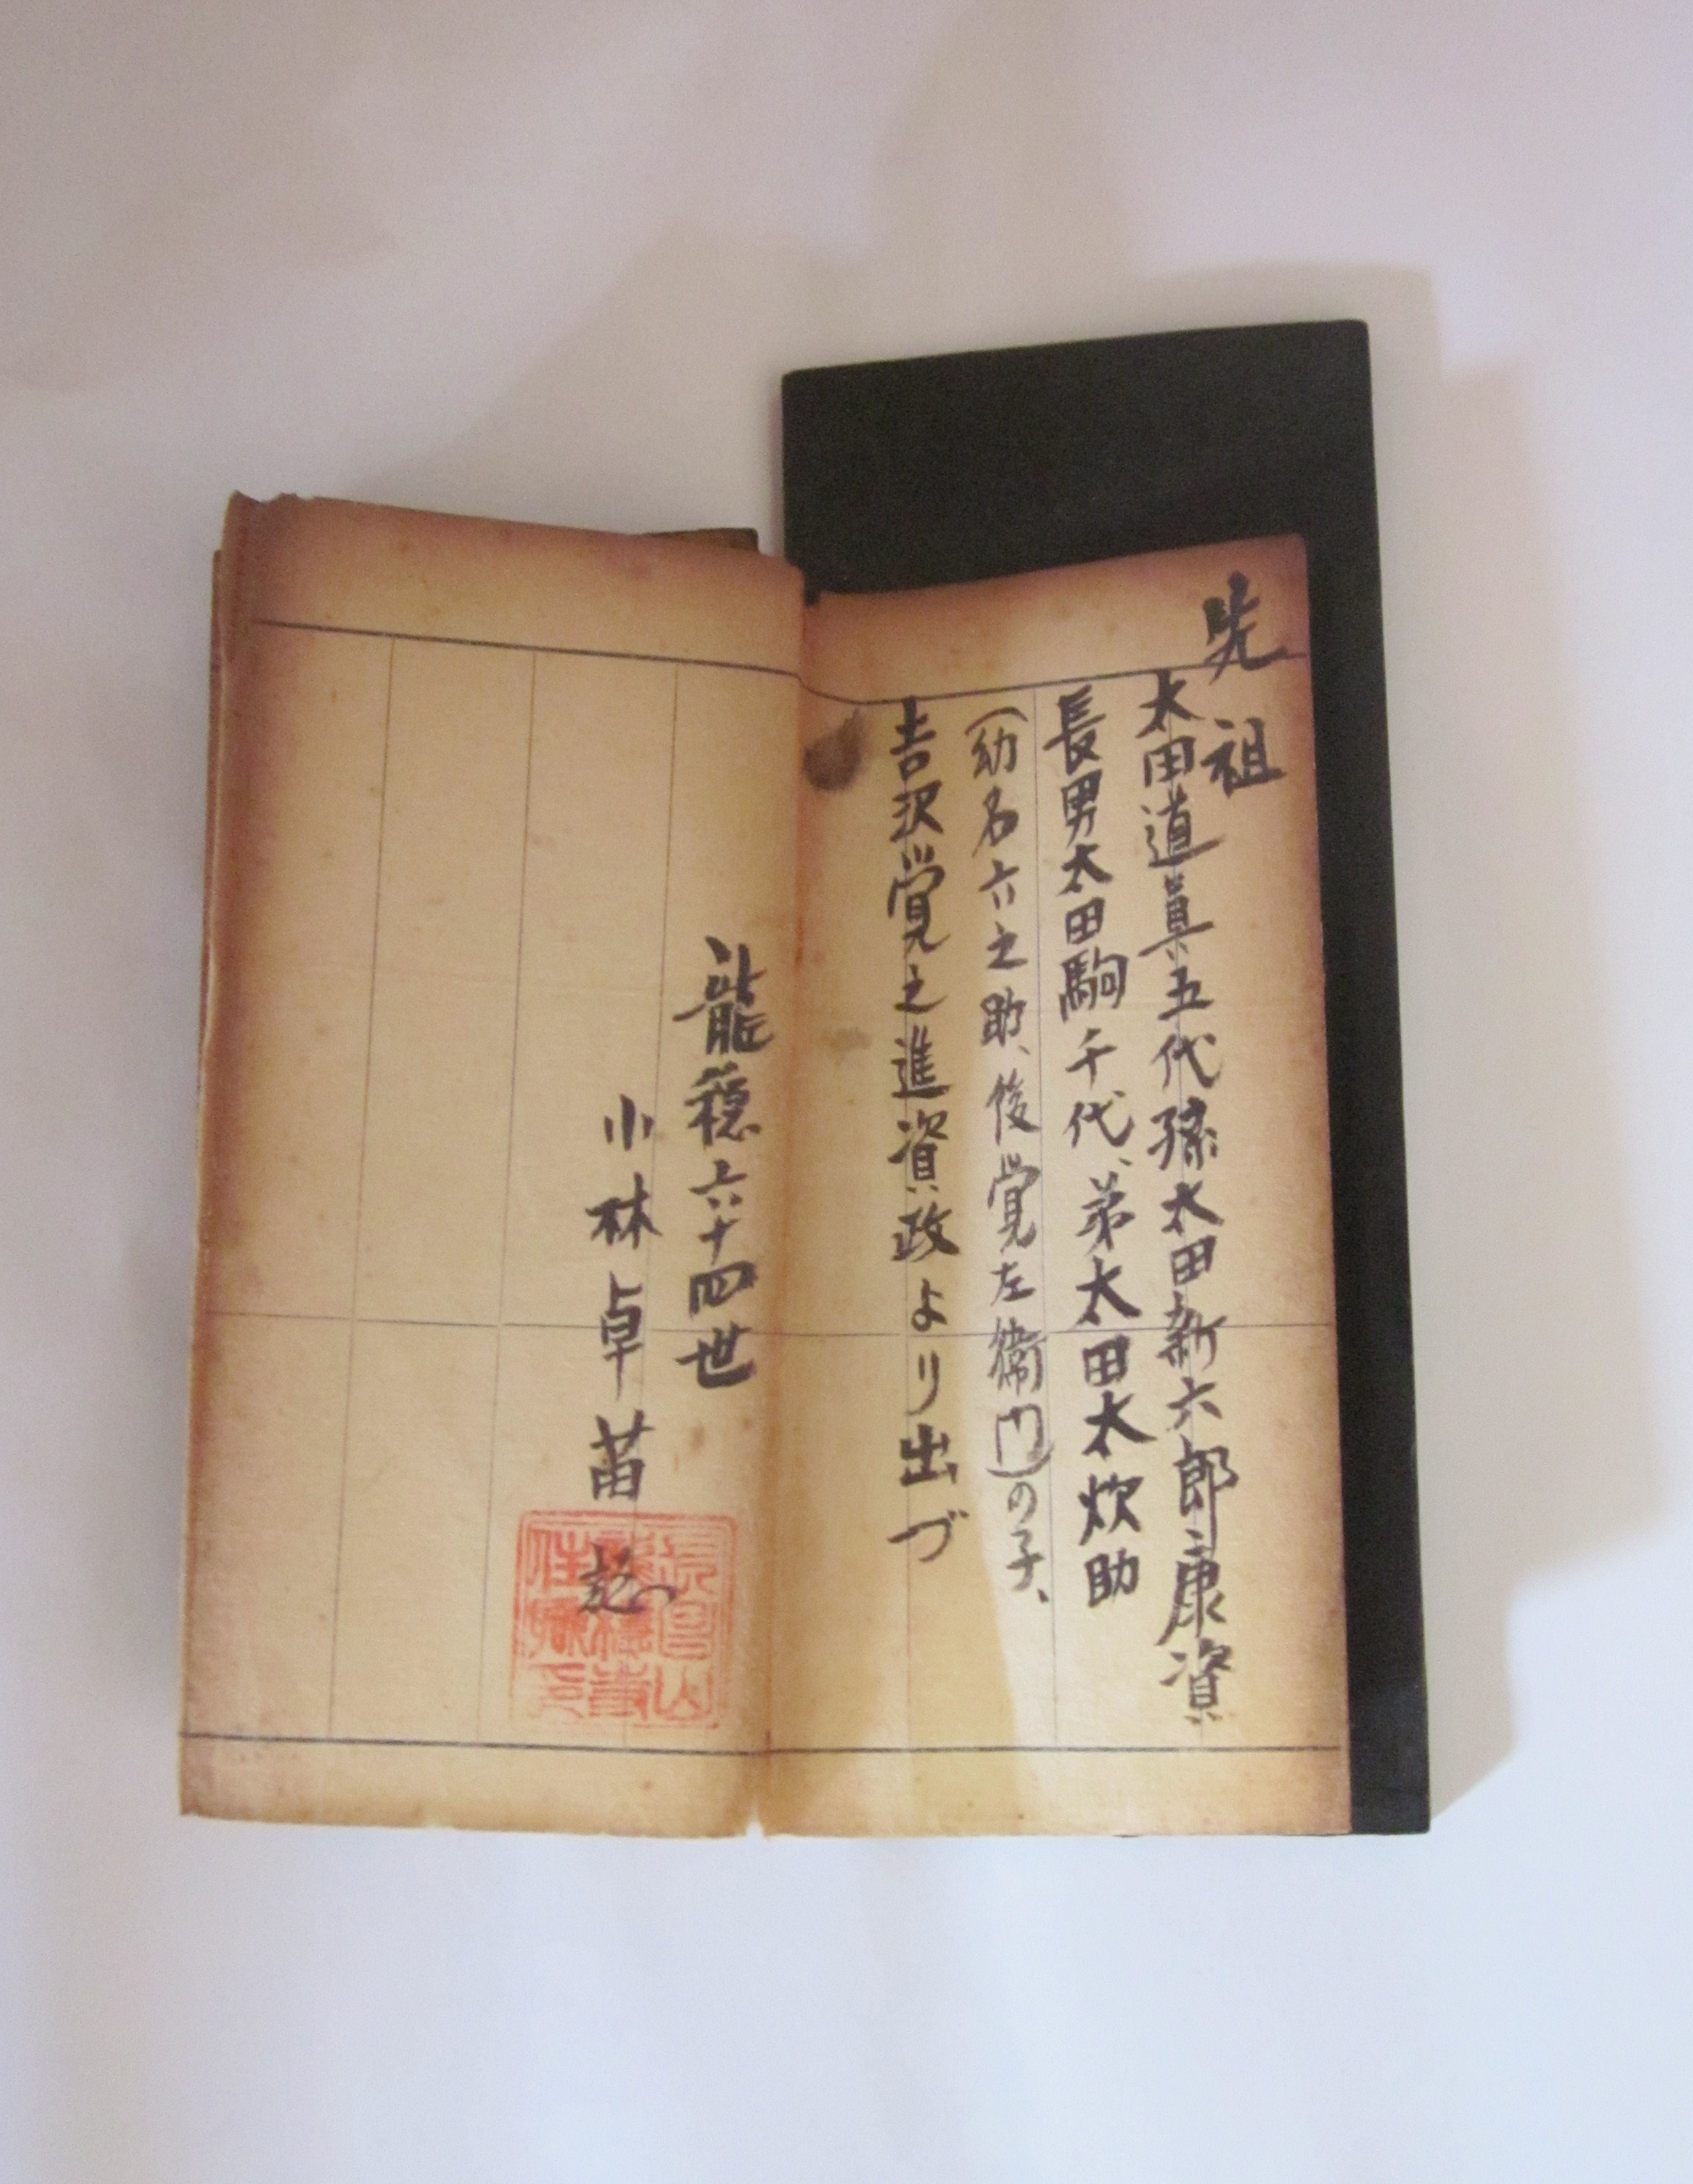 先祖
太田道真五代孫太田新六郎康資
長男太田駒千代、弟太田太炊助
(幼名六之助、後覚左衛門)の子、
吉沢覚之進資政より出づ
龍穏六十四世
小林卓苗 誌
長昌山
龍穏寺
住職印